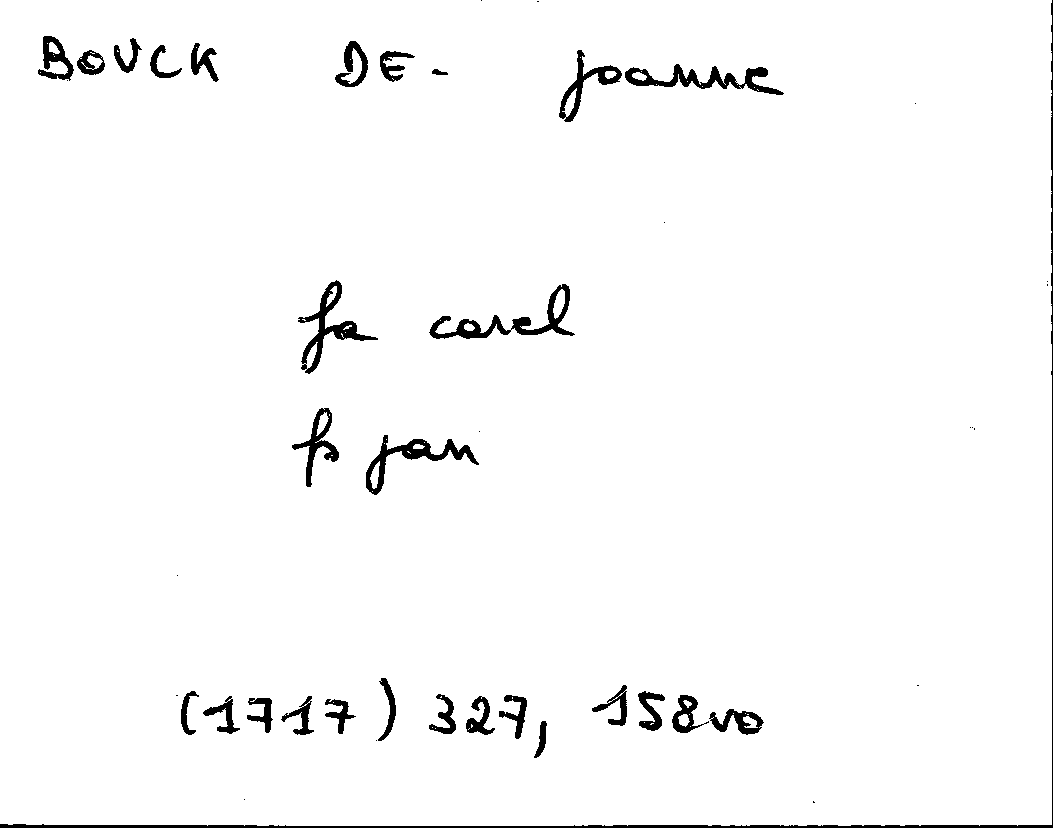 BOUCK DE- joanne
fa carel
p jan
(1717) 327, 158vo